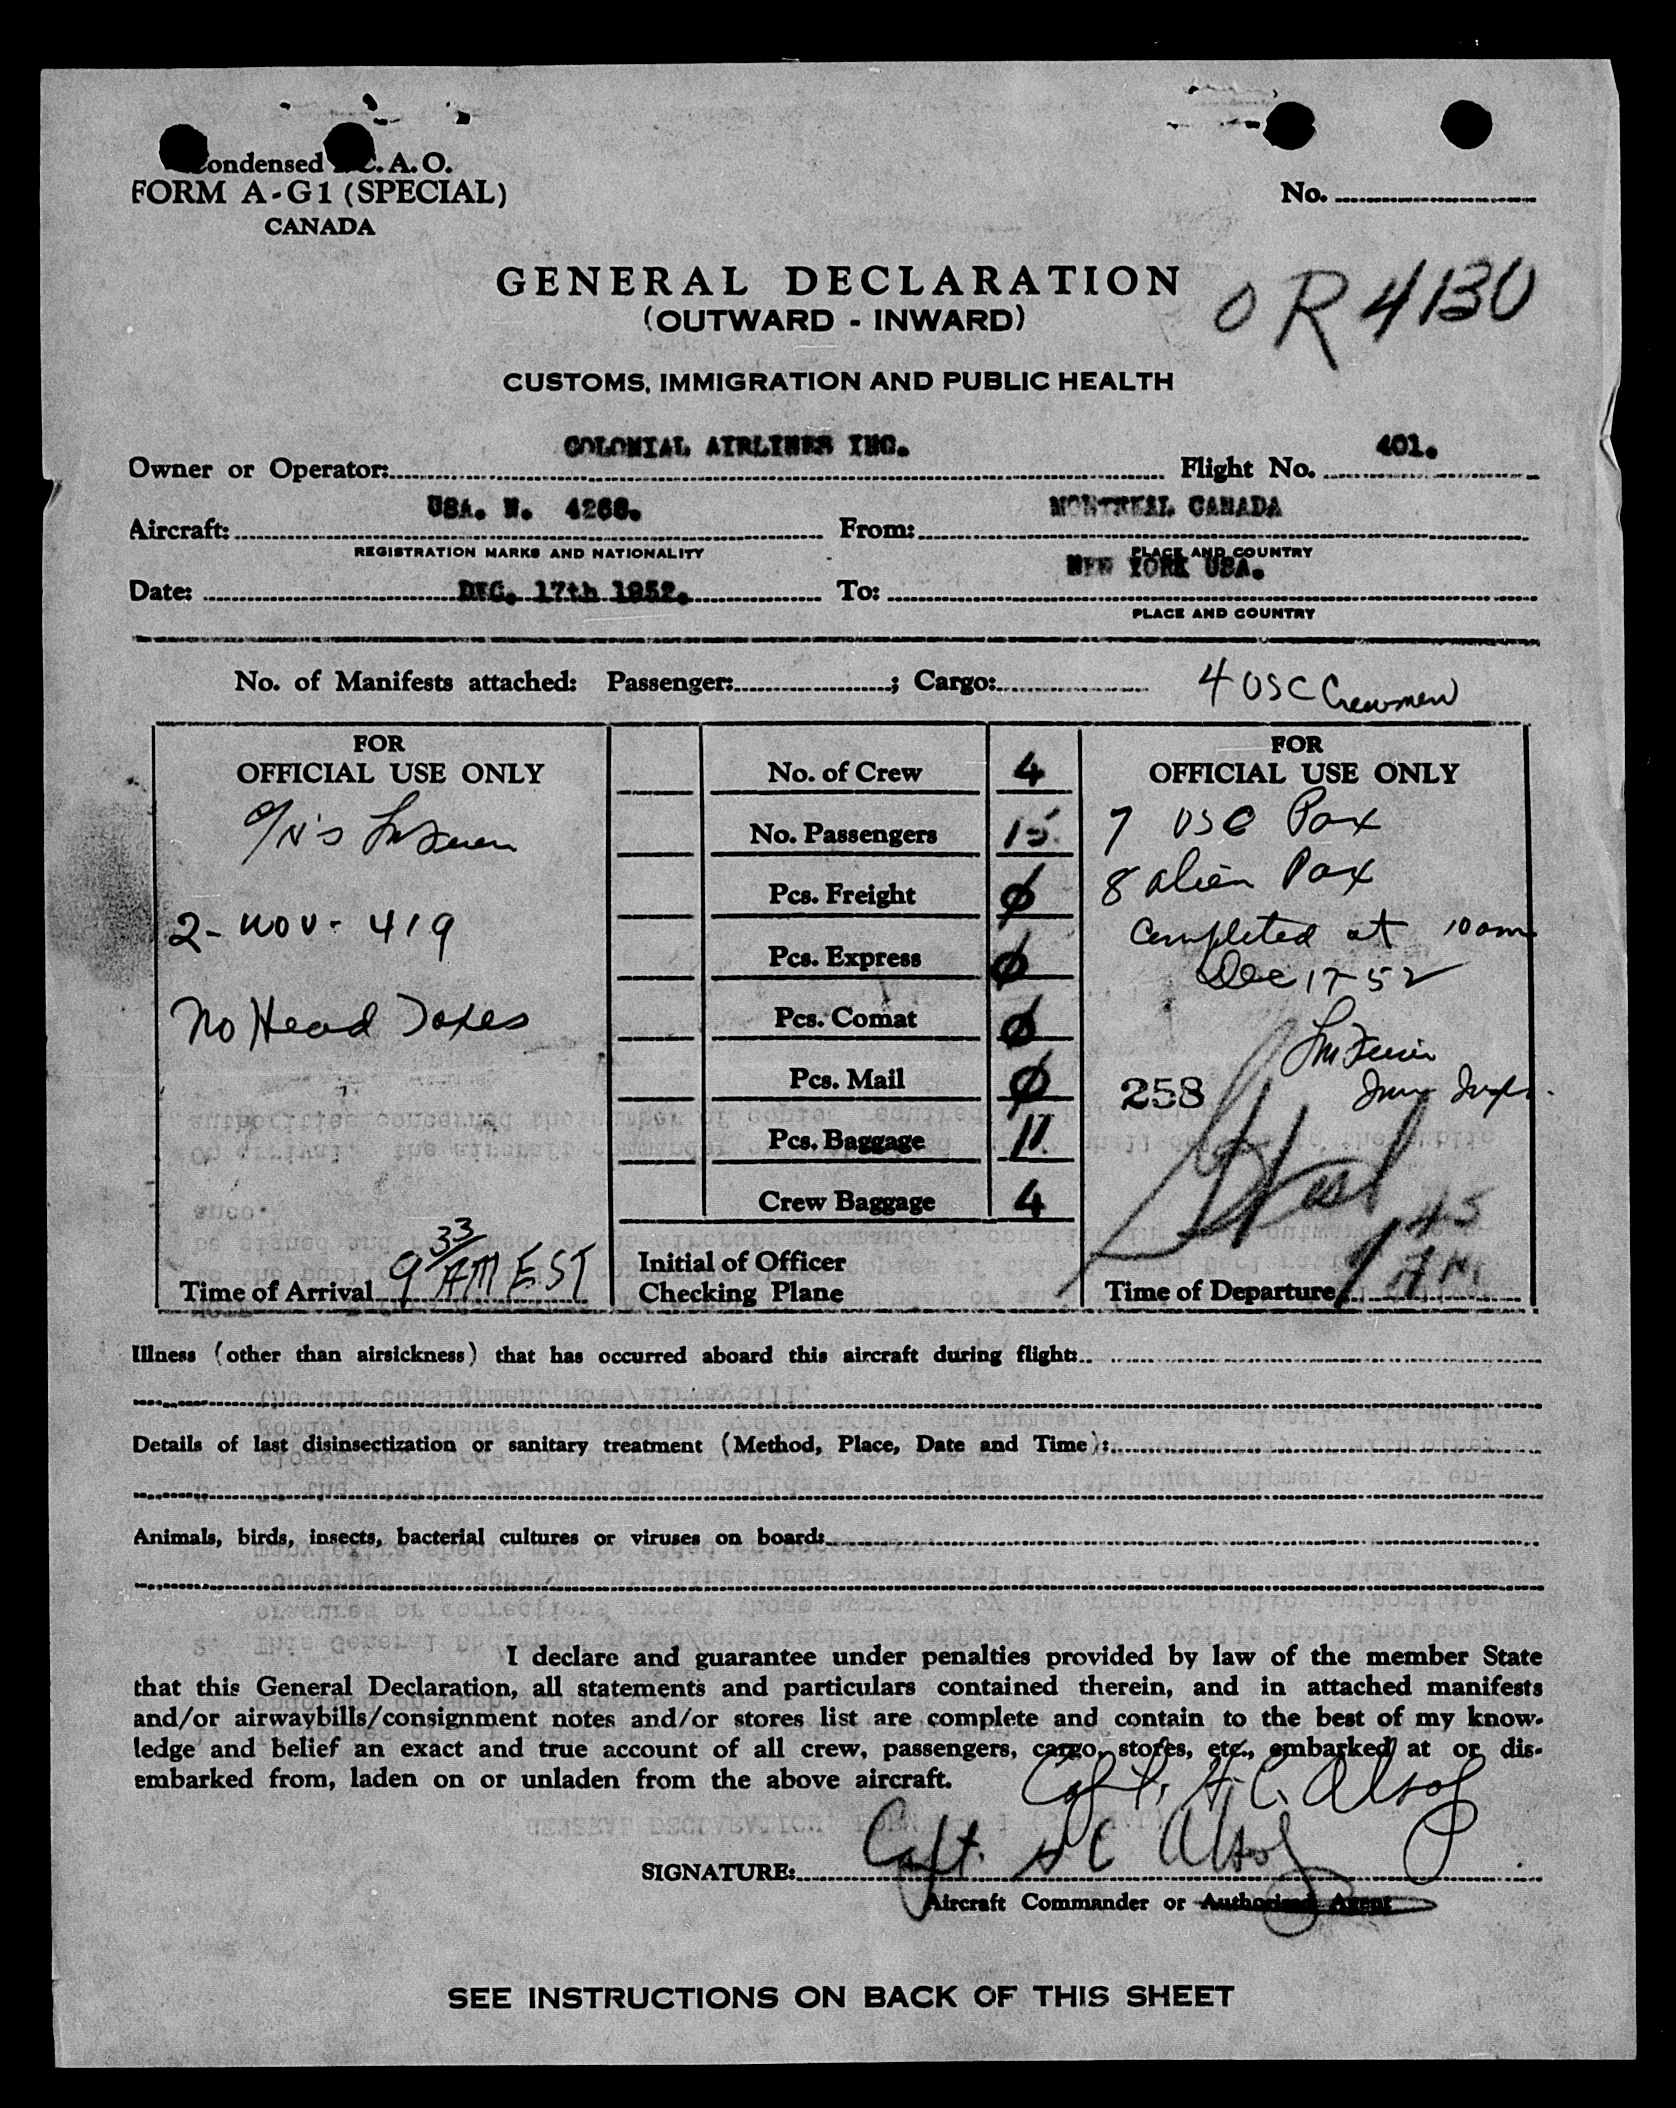 Condensed I.C.A.O.
FORM A-G1 (SPECIAL)
CANADA
No.
GENERAL DECLARATION
(OUTWARD - INWARD)
O R 4130
CUSTOMS, IMMIGRATION AND PUBLIC HEALTH
Owner or Operator: COLONIAL AIRLINES INC. Flight No. 401.
Aircraft: USA. N. 4268. From: MONTREAL CANADA
REGISTRATION MARKS AND NATIONALITY PLACE AND COUNTRY
Date: DEC. 17th 1952. To: NEW YORK USA.
PLACE AND COUNTRY
No. of Manifests attached: Passenger: ; Cargo: 4 USC Crewmen
FOR
OFFICIAL USE ONLY
2- NOV- 419
No Head Taxes
Time of Arrival 9 33 AM EST
No. of Crew 4
No. Passengers 15
Pcs. Freight ∅
Pcs. Express ∅
Pcs. Comat ∅
Pcs. Mail ∅
Pcs. Baggage 11
Crew Baggage 4
Initial of Officer
Checking Plane
FOR
OFFICIAL USE ONLY
7 USC Pax
8 alien Pax
Completed at 10 am
Dec 17-52
258
Time of Departure 7 45 AM
Illness (other than airsickness) that has occurred aboard this aircraft during flight:
Details of last disinsectization or sanitary treatment (Method, Place, Date and Time):
Animals, birds, insects, bacterial cultures or viruses on board:
I declare and guarantee under penalties provided by law of the member State
that this General Declaration, all statements and particulars contained therein, and in attached manifests
and/or airwaybills/consignment notes and/or stores list are complete and contain to the best of my know-
ledge and belief an exact and true account of all crew, passengers, cargo, stores, etc., embarked at or dis-
embarked from, laden on or unladen from the above aircraft.
Capt. H. C. Alsop
SIGNATURE: Capt. H C Alsop
Aircraft Commander or Authorized Agent
SEE INSTRUCTIONS ON BACK OF THIS SHEET